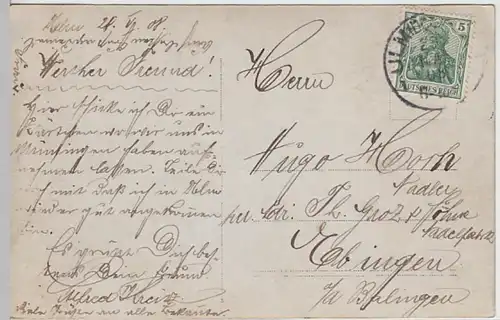 Ulm 29. 6. 08.
Werther Freund!
Hier schicke ich Dir ein
Kärtchen wo wir uns in
Münsingen haben auf-
nehmen lassen. Teile Dir
noch mit daß ich in Ulm
wieder gut angekommen
bin.
Es grüßt Dich bes-
tens Dein Freund
Alfred
Viele Grüßen an alle Bekannte.
Herrn
Hugo Horh
Nadler
per. Adr. Th. Groz & Söhne
Nadelfabrik
Ebingen
o/a Balingen
ULM
5
DEUTSCHES REICH